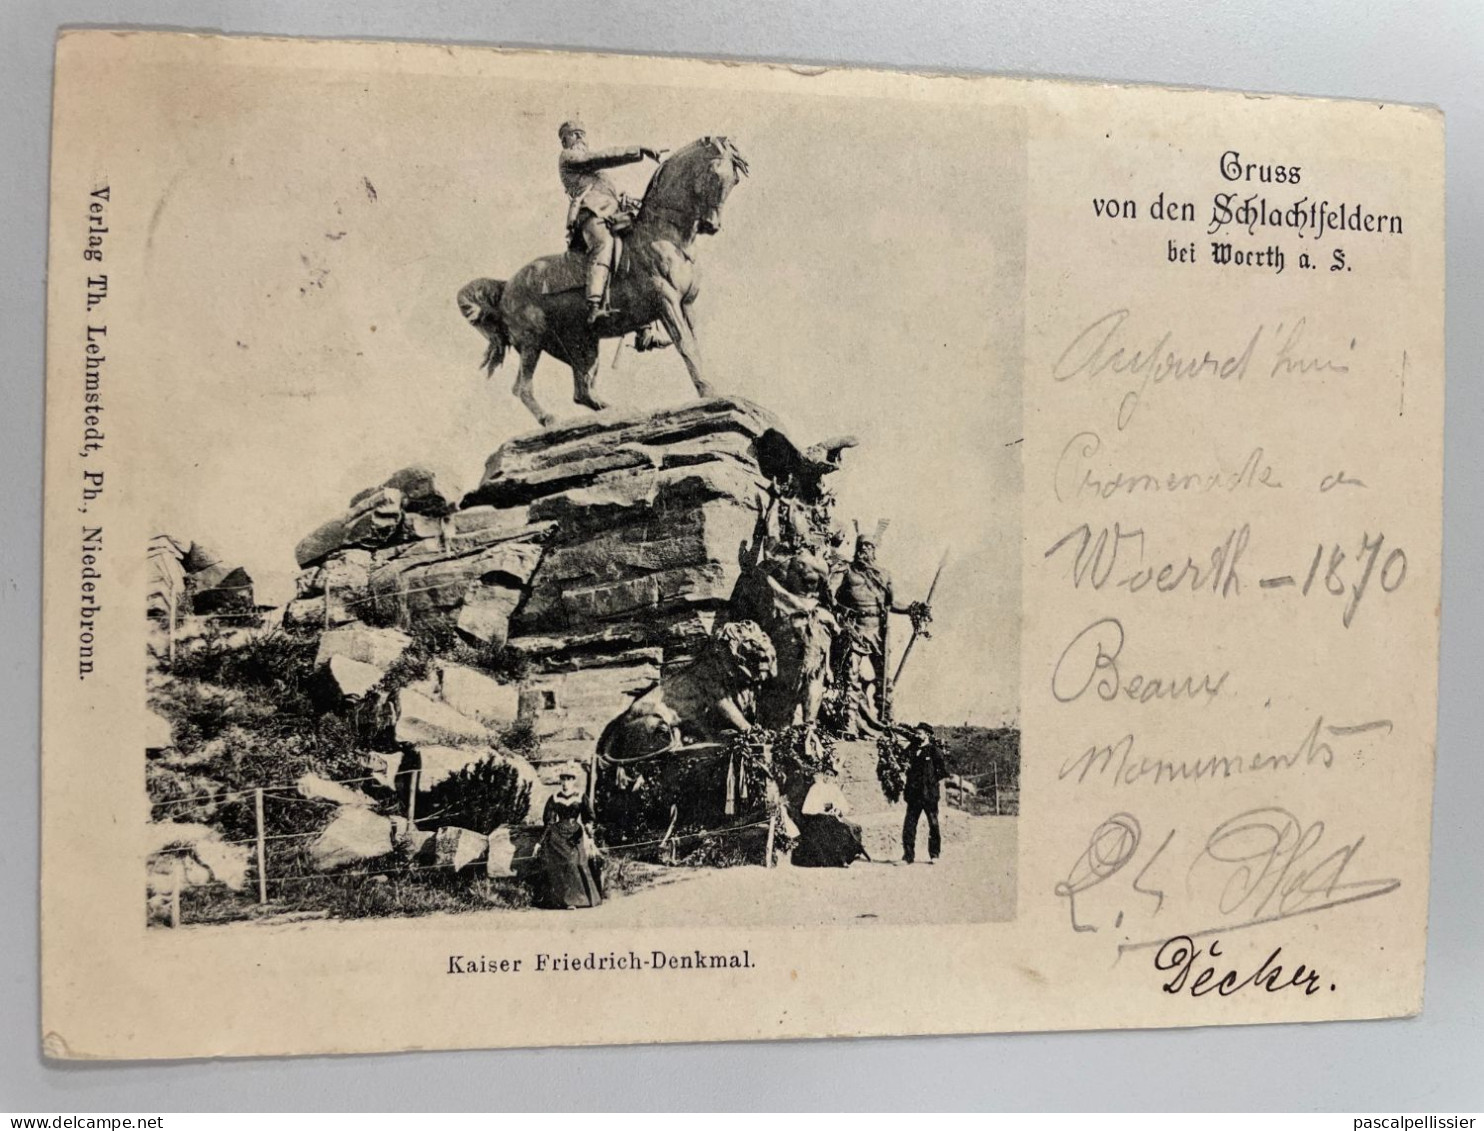 Gruss
von den Schlachtfeldern
bei Woerth a. S.
Verlag Th. Lehmstedt, Ph., Niederbronn.
Aujourd'hui
Promenade a
Woerth - 1870
Beaux
Monuments
Kaiser Friedrich-Denkmal.
Décker.
pascalpellissier